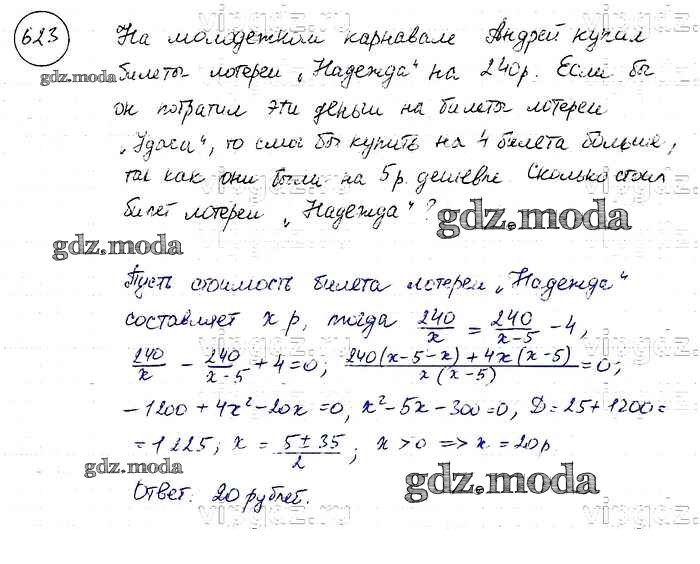 623 На молодежном карнавале Андрей купил
билеты лотереи „Надежда“ на 240р. Если бы
он потратил эти деньги на билеты лотереи
„Удача“, то смог бы купить на 4 билета больше,
так как они были на 5р. дешевле. Сколько стоил
билет лотереи „Надежда“?
Пусть стоимость билета лотереи „Надежда“
составляет x р, тогда 240/x = 240/(x-5) - 4,
240/x - 240/(x-5) + 4 = 0; (240(x-5-x) + 4x(x-5))/(x(x-5)) = 0;
-1200 + 4x² - 20x = 0, x² - 5x - 300 = 0, D = 25 + 1200 =
= 1225; x = (5 ± 35)/2; x > 0 => x = 20р.
Ответ: 20 рублей.
gdz.moda
gdz.moda
gdz.moda
gdz.moda
gdz.moda